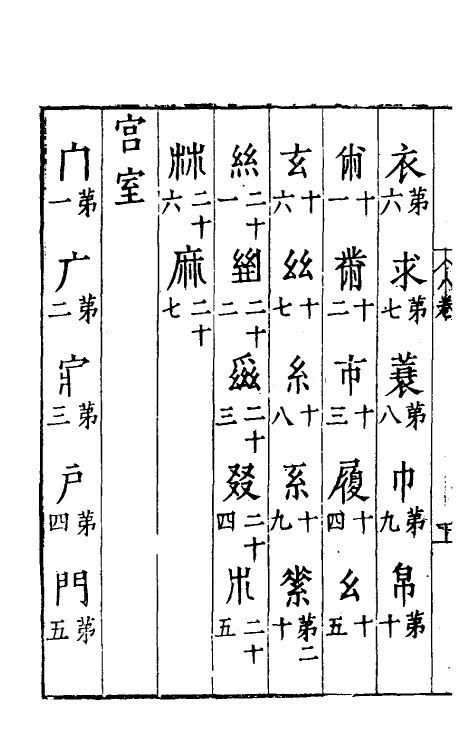 衣第六 求第七 蓑第八 巾第九 帛第十
十一 黹十二 巿十三 履十四 幺十五
玄十六 𢆶十七 糸十八 系十九 第二十
絲二十一 二十二 二十三 叕二十四 𣎳二十五
𣏟二十六 麻二十七
宮室
冂第一 广第二 第三 戶第四 門第五